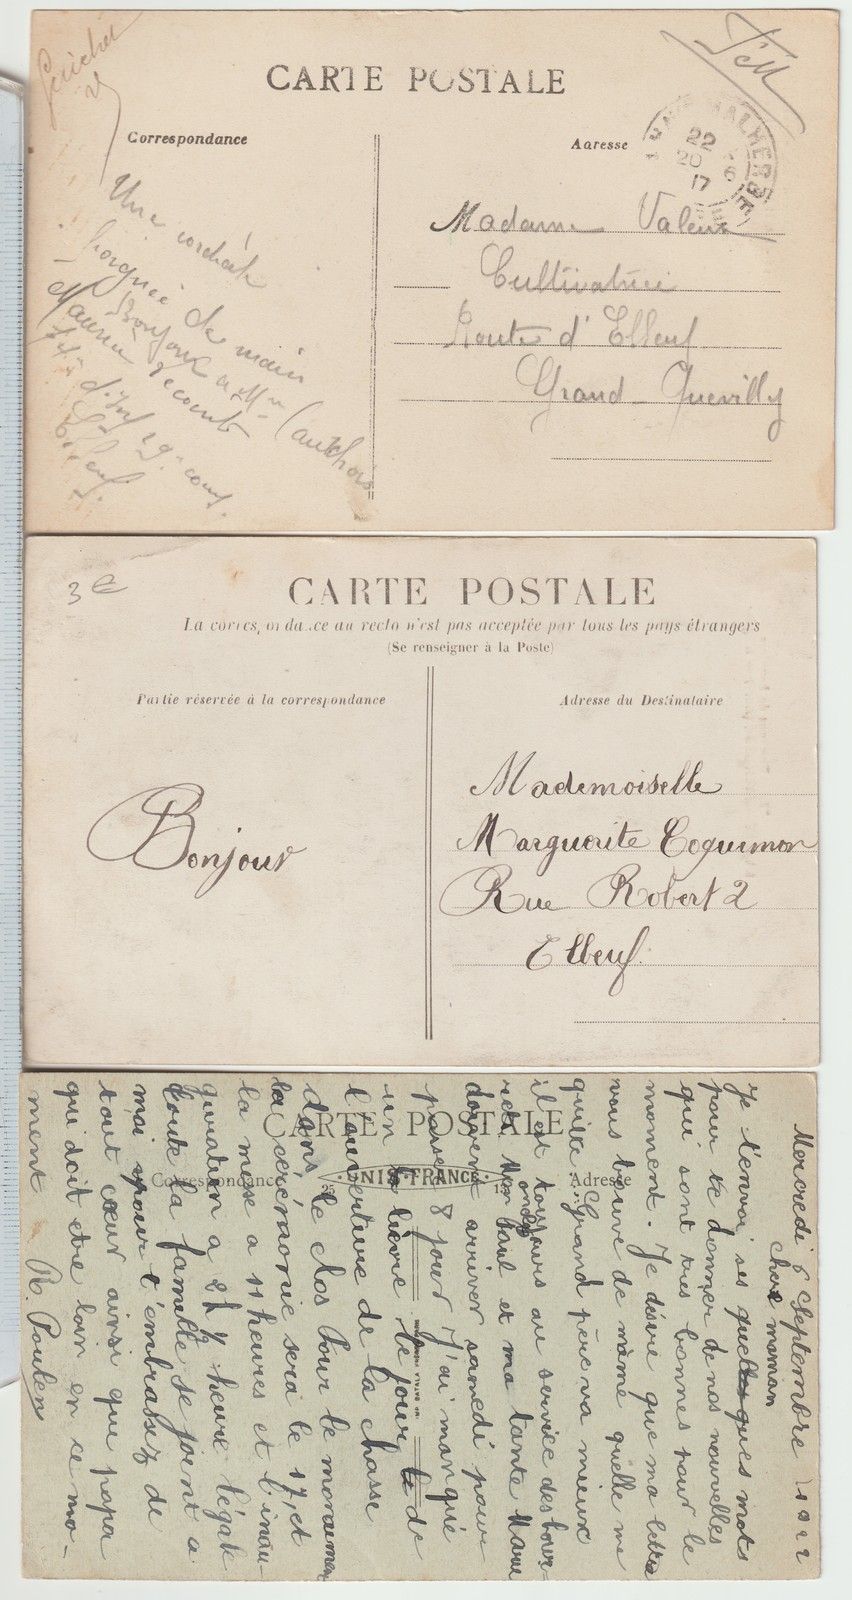 CARTE POSTALE
Correspondance
Adresse
22
20 6
17
Une cordiale
poignée de main
Bonjour a Mr
Madame Valeur
Cultivatrice
Route d'Elbeuf
Grand Quevilly
3 €
CARTE POSTALE
La correspondance au recto n'est pas acceptée par tous les pays étrangers
(Se renseigner à la Poste)
Partie réservée à la correspondance
Adresse du Destinataire
Bonjour
Mademoiselle
Marguerite Coquemon
Rue Robert 2
Elbeuf
CARTE POSTALE
Correspondance
25 UNIS-FRANCE 15
Adresse
Mercredi 6 Septembre 1922
Chere maman
Je t'envoi ses quelques mots
pour te donner de nos nouvelles
qui sont tres bonnes pour le
moment. Je désire que ma lettre
vous trouve de même quelle me
quitte Grand père va mieux
il est toujours au service des bour-
Mon oncle Paul et ma tante Marie
doivent arriver samedi pour
passer 8 jour J'ai manqué
un lievre le jour de
l'ouverture de la chasse
dans le clos Pour le
la cérémonie sera le 17, et
la messe a 11 heures et l'inau-
guration a 2h ½ heure légale
toute la famille se joint a
moi pour t'embrassez de
tout cœur ainsi que papa
qui doit etre loin en ce mo-
ment R. Poulen